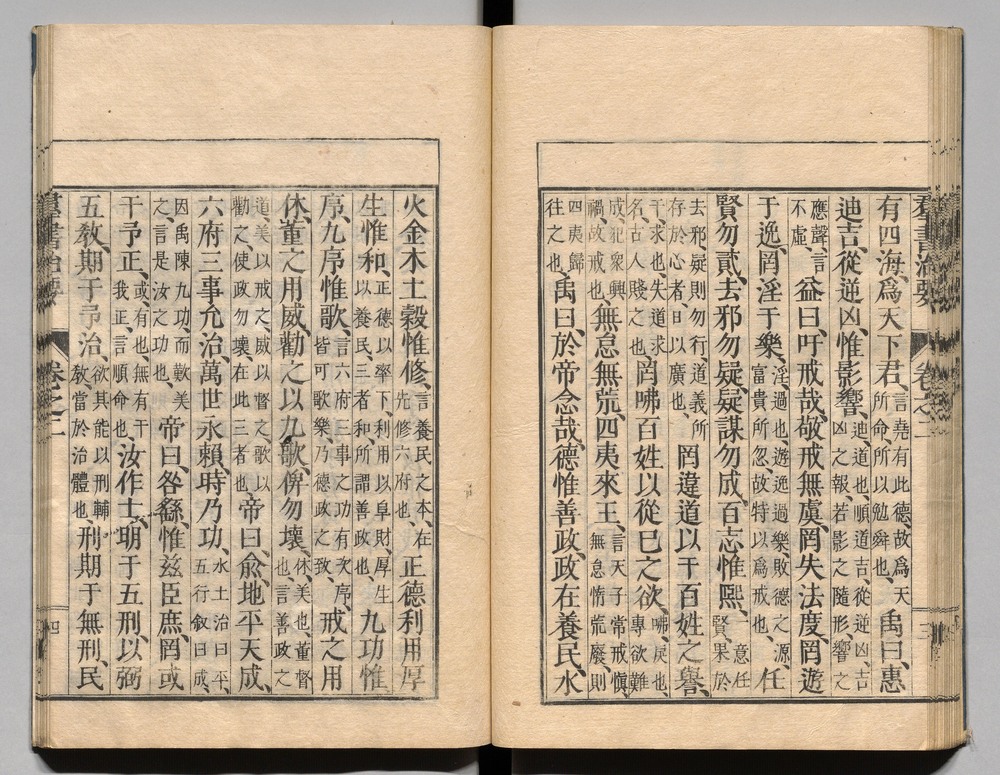 羣書治要 卷之二
有四海、爲天下君、言堯有此德、故爲天所命、所以勉舜也、禹曰、惠
迪吉、從逆凶、惟影響、迪、道也、順道吉、從逆凶、吉凶之報、若影之隨形、響之
應聲、言不虛、益曰、吁戒哉、敬戒無虞、罔失法度、罔遊
于逸、罔淫于樂、淫、過也、遊逸過樂、敗德之源、富貴所忽、故特以爲戒也、任
賢勿貳、去邪勿疑、疑謀勿成、百志惟熙、意任賢、果於
去邪、疑則勿行、道義所存於心者、日以廣也、罔違道以干百姓之譽、
干、求也、失道求名、古人賤之也、罔咈百姓以從己之欲、咈、戾也、專欲難
成、犯衆興禍、故戒也、無怠無荒、四夷來王、言天子常戒愼、無怠惰荒廢、則
四夷歸往之也、禹曰、於帝念哉、德惟善政、政在養民、水
火金木土穀惟修、言養民之本、在先修六府也、正德利用厚
生惟和、正德以率下、利用以阜財、厚生以養民、三者和、所謂善政也、九功惟
序、九序惟歌、言六府三事之功有次序、皆可歌樂、乃德政之致、戒之用
休、董之用威、勸之以九歌、俾勿壞、休、美也、董督也、言善政之
道、美以戒之、威以督之、歌以勸之、使政勿壞、在此三者也、帝曰、兪、地平天成、
六府三事允治、萬世永賴、時乃功、水土治曰平、五行叙曰成、
因禹陳九功、而歎美之、言是汝之功也、帝曰、咎繇、惟茲臣庶、罔或
干予正、或、有也、無有干我正、言順命也、汝作士、明于五刑、以弼
五敎、期于予治、欲其能以刑輔敎、當於治體也、刑期于無刑、民
羣書治要 卷之二 四